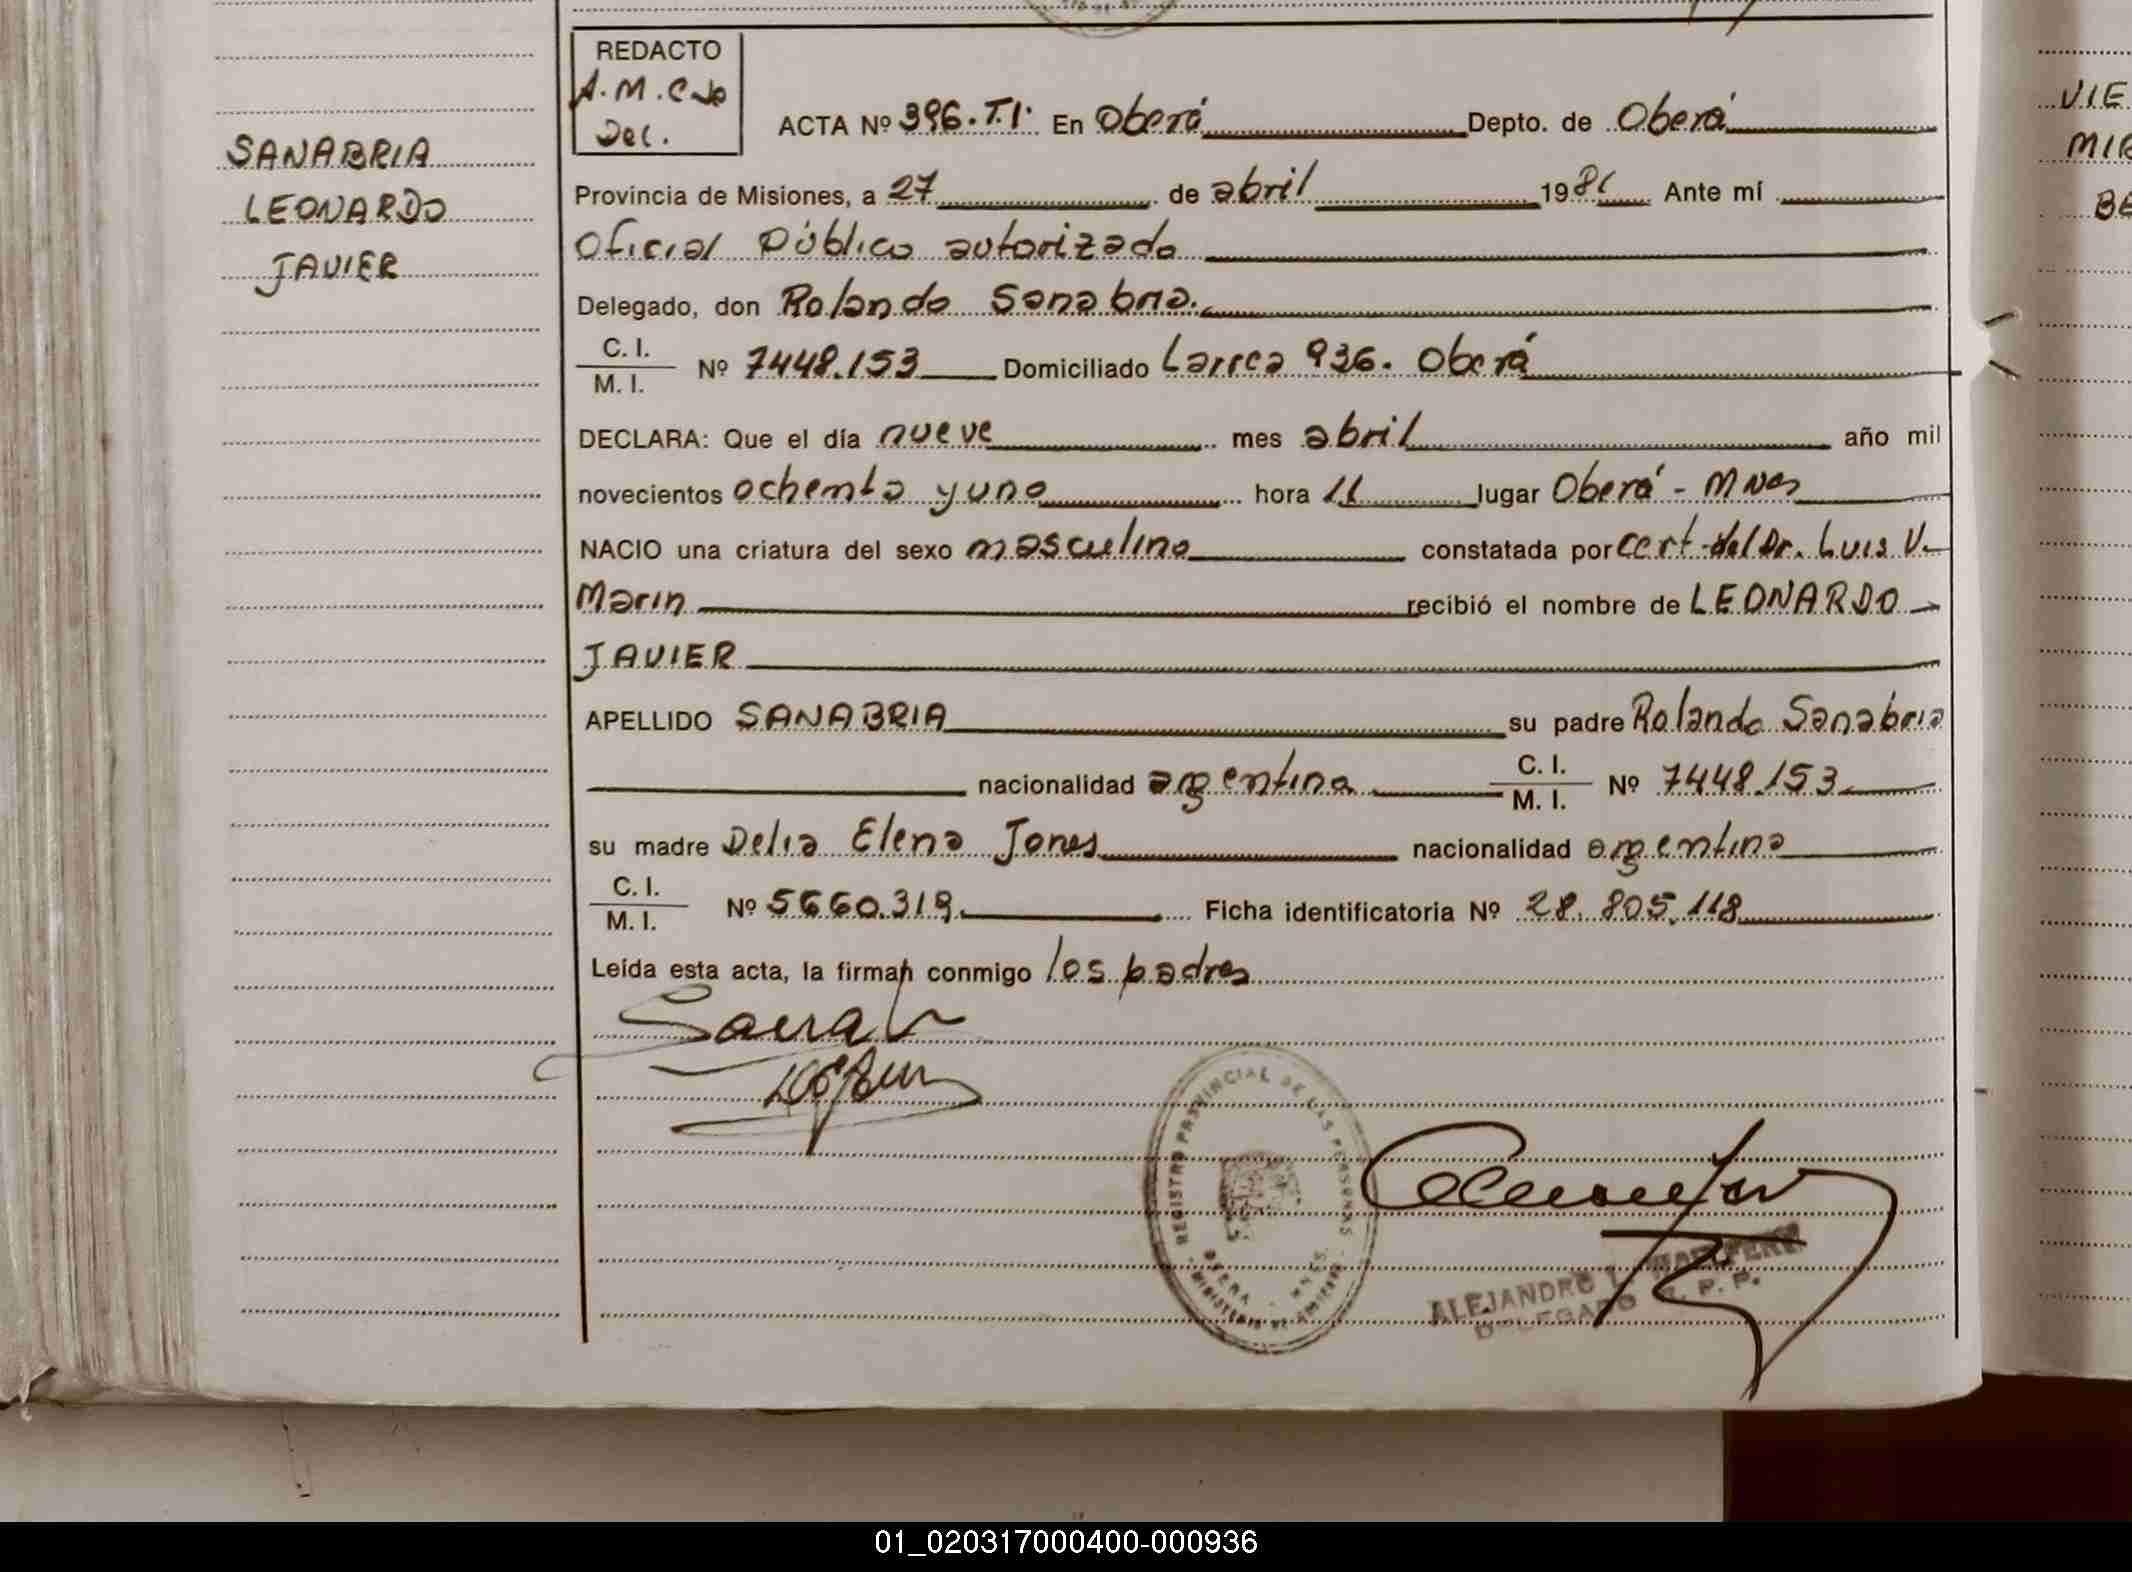 SANABRIA
LEONARDO
JAVIER
REDACTO
A.M.C
Del.
ACTA Nº 396.T.I. En Oberá Depto. de Oberá
Provincia de Misiones, a 27 de abril 1981 Ante mí
Oficial Público autorizado
Delegado, don Rolando Sanabria.
C. I.
M. I. Nº 7448.153 Domiciliado Larrea 936. Oberá
DECLARA: Que el día nueve mes abril año mil
novecientos ochenta y uno hora 11 lugar Oberá - Mnes
NACIO una criatura del sexo masculino constatada por cert. del Dr. Luis V.
Marin recibió el nombre de LEONARDO
JAVIER
APELLIDO SANABRIA su padre Rolando Sanabria
nacionalidad argentina C. I.
M. I. Nº 7448.153
su madre Delia Elena Jones nacionalidad argentina
C. I.
M. I. Nº 5660.319 Ficha identificatoria Nº 28.805.118
Leída esta acta, la firman conmigo los padres
REGISTRO PROVINCIAL DE LAS PERSONAS
OBERA - MNES.
ALEJANDRO I.
DELEGADO R. P. P.
VIE
MIR
BE
01_020317000400-000936